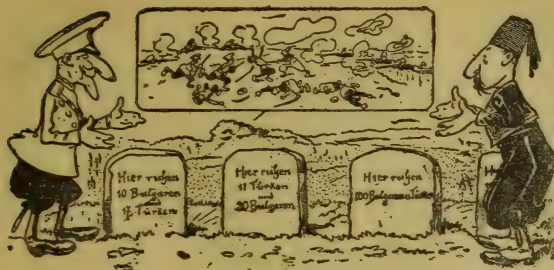 Hier ruhen
10 Bulgaren
und
12 Türken
Hier ruhen
11 Türken
und
20 Bulgaren
Hier ruhen
100 Bulgaren u. Türken
H